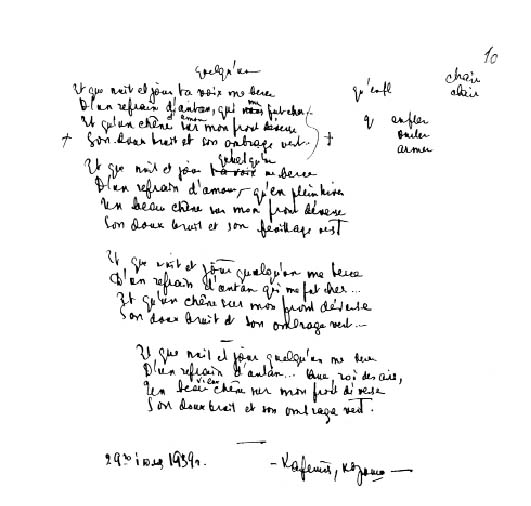 10
quelqu'un
Et que nuit et jour ta voix me berce
D'un refrain d'antan, qui me fut cher,
Et qu'un chêne sur mon front déverse
+ Son doux bruit et son ombrage vert. +
qu'enfl
chair
clair
enfler
ouvler
armer
quelqu'un
Et que nuit et jour ta voix me berce
D'un refrain d'amour, qu'en plein hiver
Un beau chêne sur mon front déverse
Son doux bruit et son feuillage vert
Et que nuit et jour quelqu'un me berce
D'un refrain d'antan qui me fut cher...
Et qu'un chêne sur mon front déverse
Son doux bruit et son ombrage vert...
Et que nuit et jour quelqu'un me berce
D'un refrain d'antan... Que, roi des airs,
Un vieux chêne sur mon front déverse
Son doux bruit et son ombrage vert.
1939